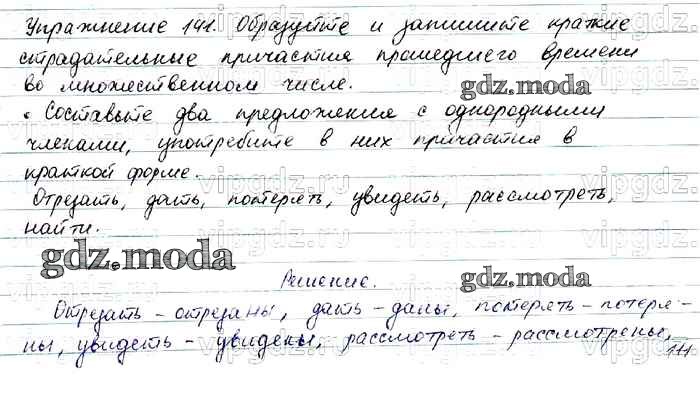 Упражнение 141. Образуйте и запишите краткие
страдательные причастия прошедшего времени
во множественном числе.
gdz.moda
• Составьте два предложения с однородными
членами, употребите в них причастия в
краткой форме.
vipgdz.ru
Отрезать, дать, потерять, увидеть, рассмотреть,
найти.
gdz.moda
Решение.
gdz.moda
Отрезать - отрезаны, дать - даны, потерять - потеря-
ны, увидеть - увидены, рассмотреть - рассмотрены,
141